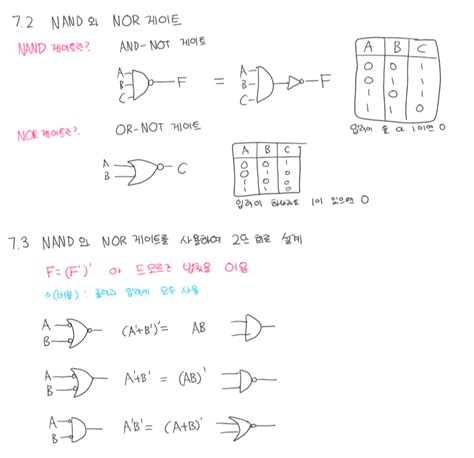 7.2 NAND 와 NOR 게이트
NAND 게이트란? AND-NOT 게이트
A
B
C
F
=
A
B
C
F
A B C
0 0 1
0 1 1
1 0 1
1 1 0
입력이 둘 다 1이면 0
NOR 게이트란? OR-NOT 게이트
A
B
C
A B C
0 0 1
0 1 0
1 0 0
1 1 0
입력이 하나라도 1이 있으면 0
7.3 NAND 와 NOR 게이트를 사용하여 2단 회로 설계
F=(F')' 와 드모르간 법칙을 이용
o(버블) : 출력과 입력에 모두 사용
A
B
(A'+B')'= AB
A
B
A'+B' = (AB)'
A
B
A'B' = (A+B)'